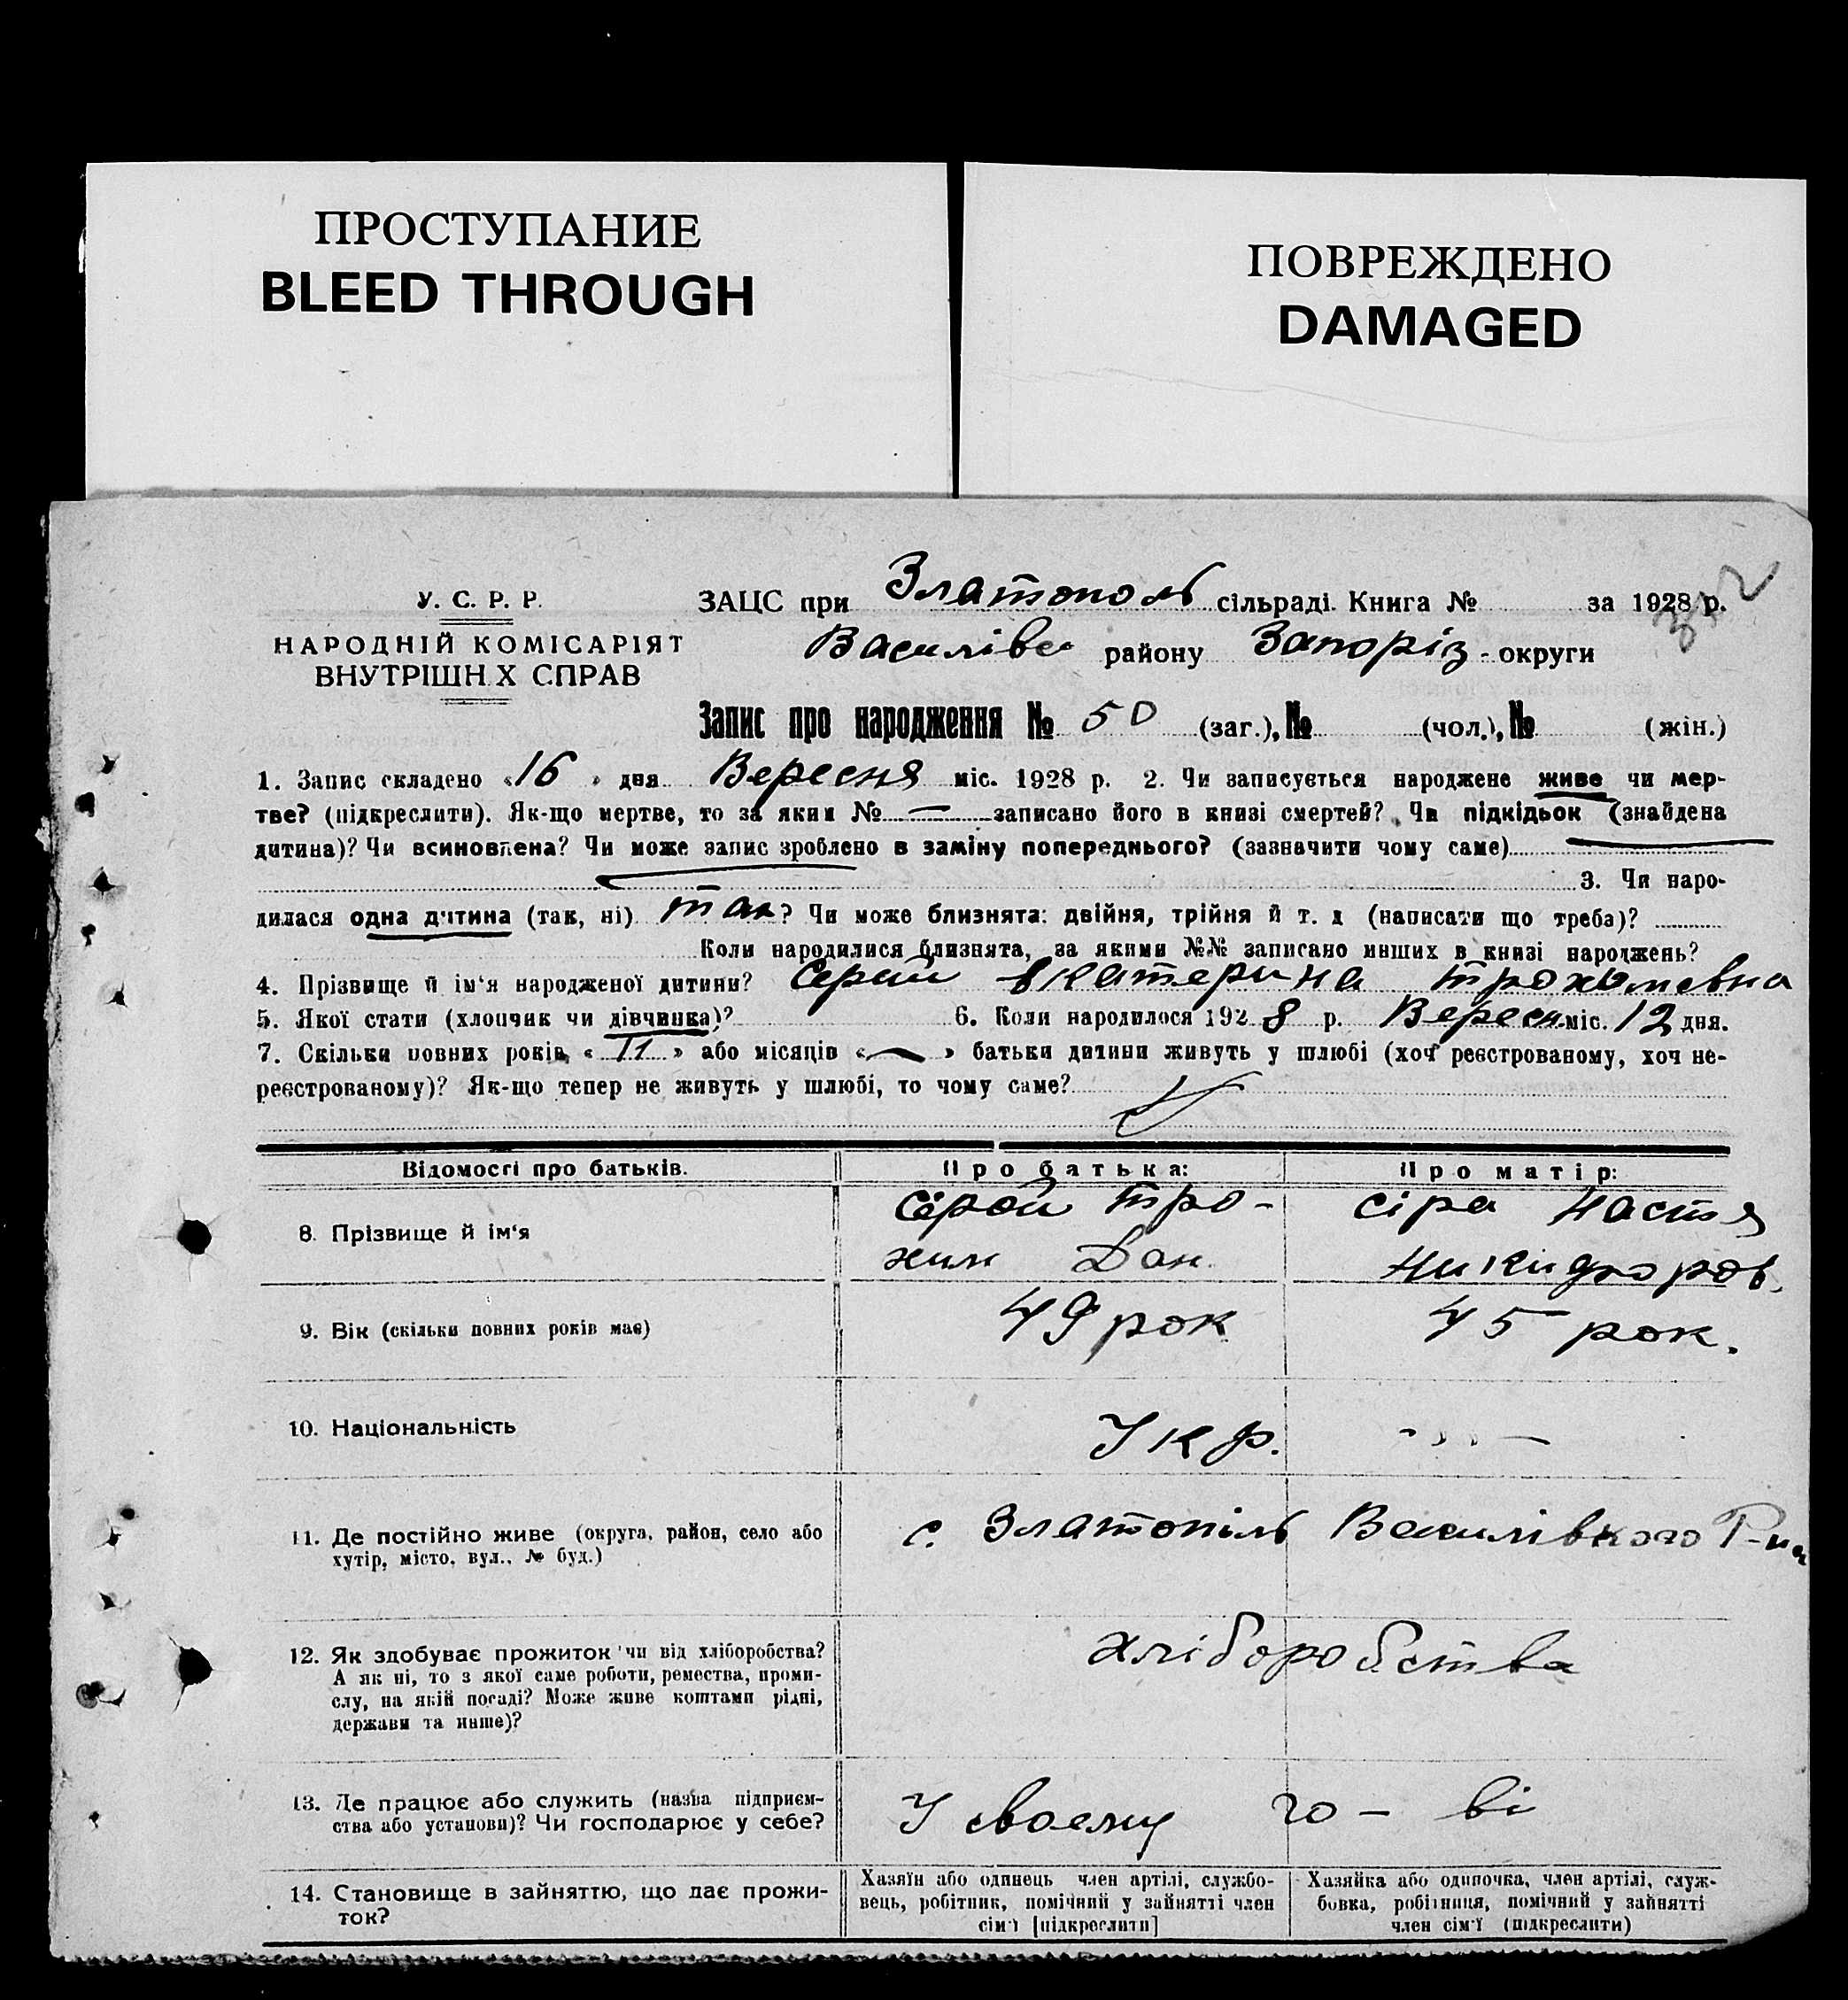 ПРОСТУПАНИЕ
BLEED THROUGH
ПОВРЕЖДЕНО
DAMAGED
У. С. Р. Р.
НАРОДНІЙ КОМІСАРІЯТ
ВНУТРІШН Х СПРАВ
ЗАЦС при Златополь сільраді. Книга № за 1928 р.
Василівсь району Запоріз - округи
Запис про народження № 50 (заг.), № (чол.), № (жін.)
1. Запис складено «16» дня Вересня міс. 1928 р. 2. Чи записується народжене живе чи мер-
тве? (підкреслити). Як-що мертве, то за яким № — записано його в книзі смертей? Чи підкідьок (знайдена
дитина)? Чи всиновлена? Чи може запис зроблено в заміну попереднього? (зазначити чому саме)
3. Чи наро-
дилася одна дитина (так, ні) так? Чи може близнята: двійня, трійня й т. д (написати що треба)?
Коли народилися близнята, за якими №№ записано инших в книзі народжень?
4. Прізвище й ім'я народженої дитини? Серий Екатерина Трохимевна
5. Якої стати (хлопчик чи дівчинка)? 6. Коли народилося 1928 р. Вересн. міс. 12 дня.
7. Скільки повних років «11» або місяців «—» батьки дитини живуть у шлюбі (хоч реєстрованому, хоч не-
реєстрованому)? Як-що тепер не живуть у шлюбі, то чому саме?
Відомості про батьків. Про батька: Про матір:
8. Прізвище й ім'я
Сірой Тро-
хим Дан.
Сіра Настя
Никифоров.
9. Вік (скільки повних років має) 49 рок 45 рок.
10. Національність Укр. - „ -
11. Де постійно живе (округа, район, село або
хутір, місто, вул., № буд.)
с. Златопіль Василівкого Р-на
12. Як здобуває прожиток чи від хліборобства?
А як ні, то з якої саме роботи, ремества, проми-
слу, на якій посаді? Може живе коштами рідні,
держави та инше)?
хліборобства
13. Де працює або служить (назва підприєм-
ства або установи)? Чи господарює у себе?
У своєму го - ві
14. Становище в зайняттю, що дає прожи-
ток?
Хазяїн або одинець член артілі, службо-
вець, робітник, помічний у зайнятті член
сім'ї [підкреслити]
Хазяйка або одиночка, член артілі, служ-
бовка, робітниця, помічний у зайнятті
член сім'ї (підкреслити)